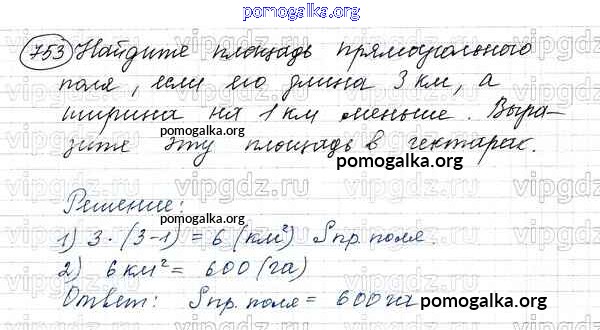 pomogalka.org
753 Найдите площадь прямоугольного
поля, если его длина 3 км, а
ширина на 1 км меньше. Выра-
pomogalka.org
зите эту площадь в гектарах.
pomogalka.org
Решение:
pomogalka.org
1) 3 · (3-1) = 6 (км²) Sпр. поля.
2) 6 км² = 600 (га)
Ответ: Sпр. поля = 600 га
pomogalka.org